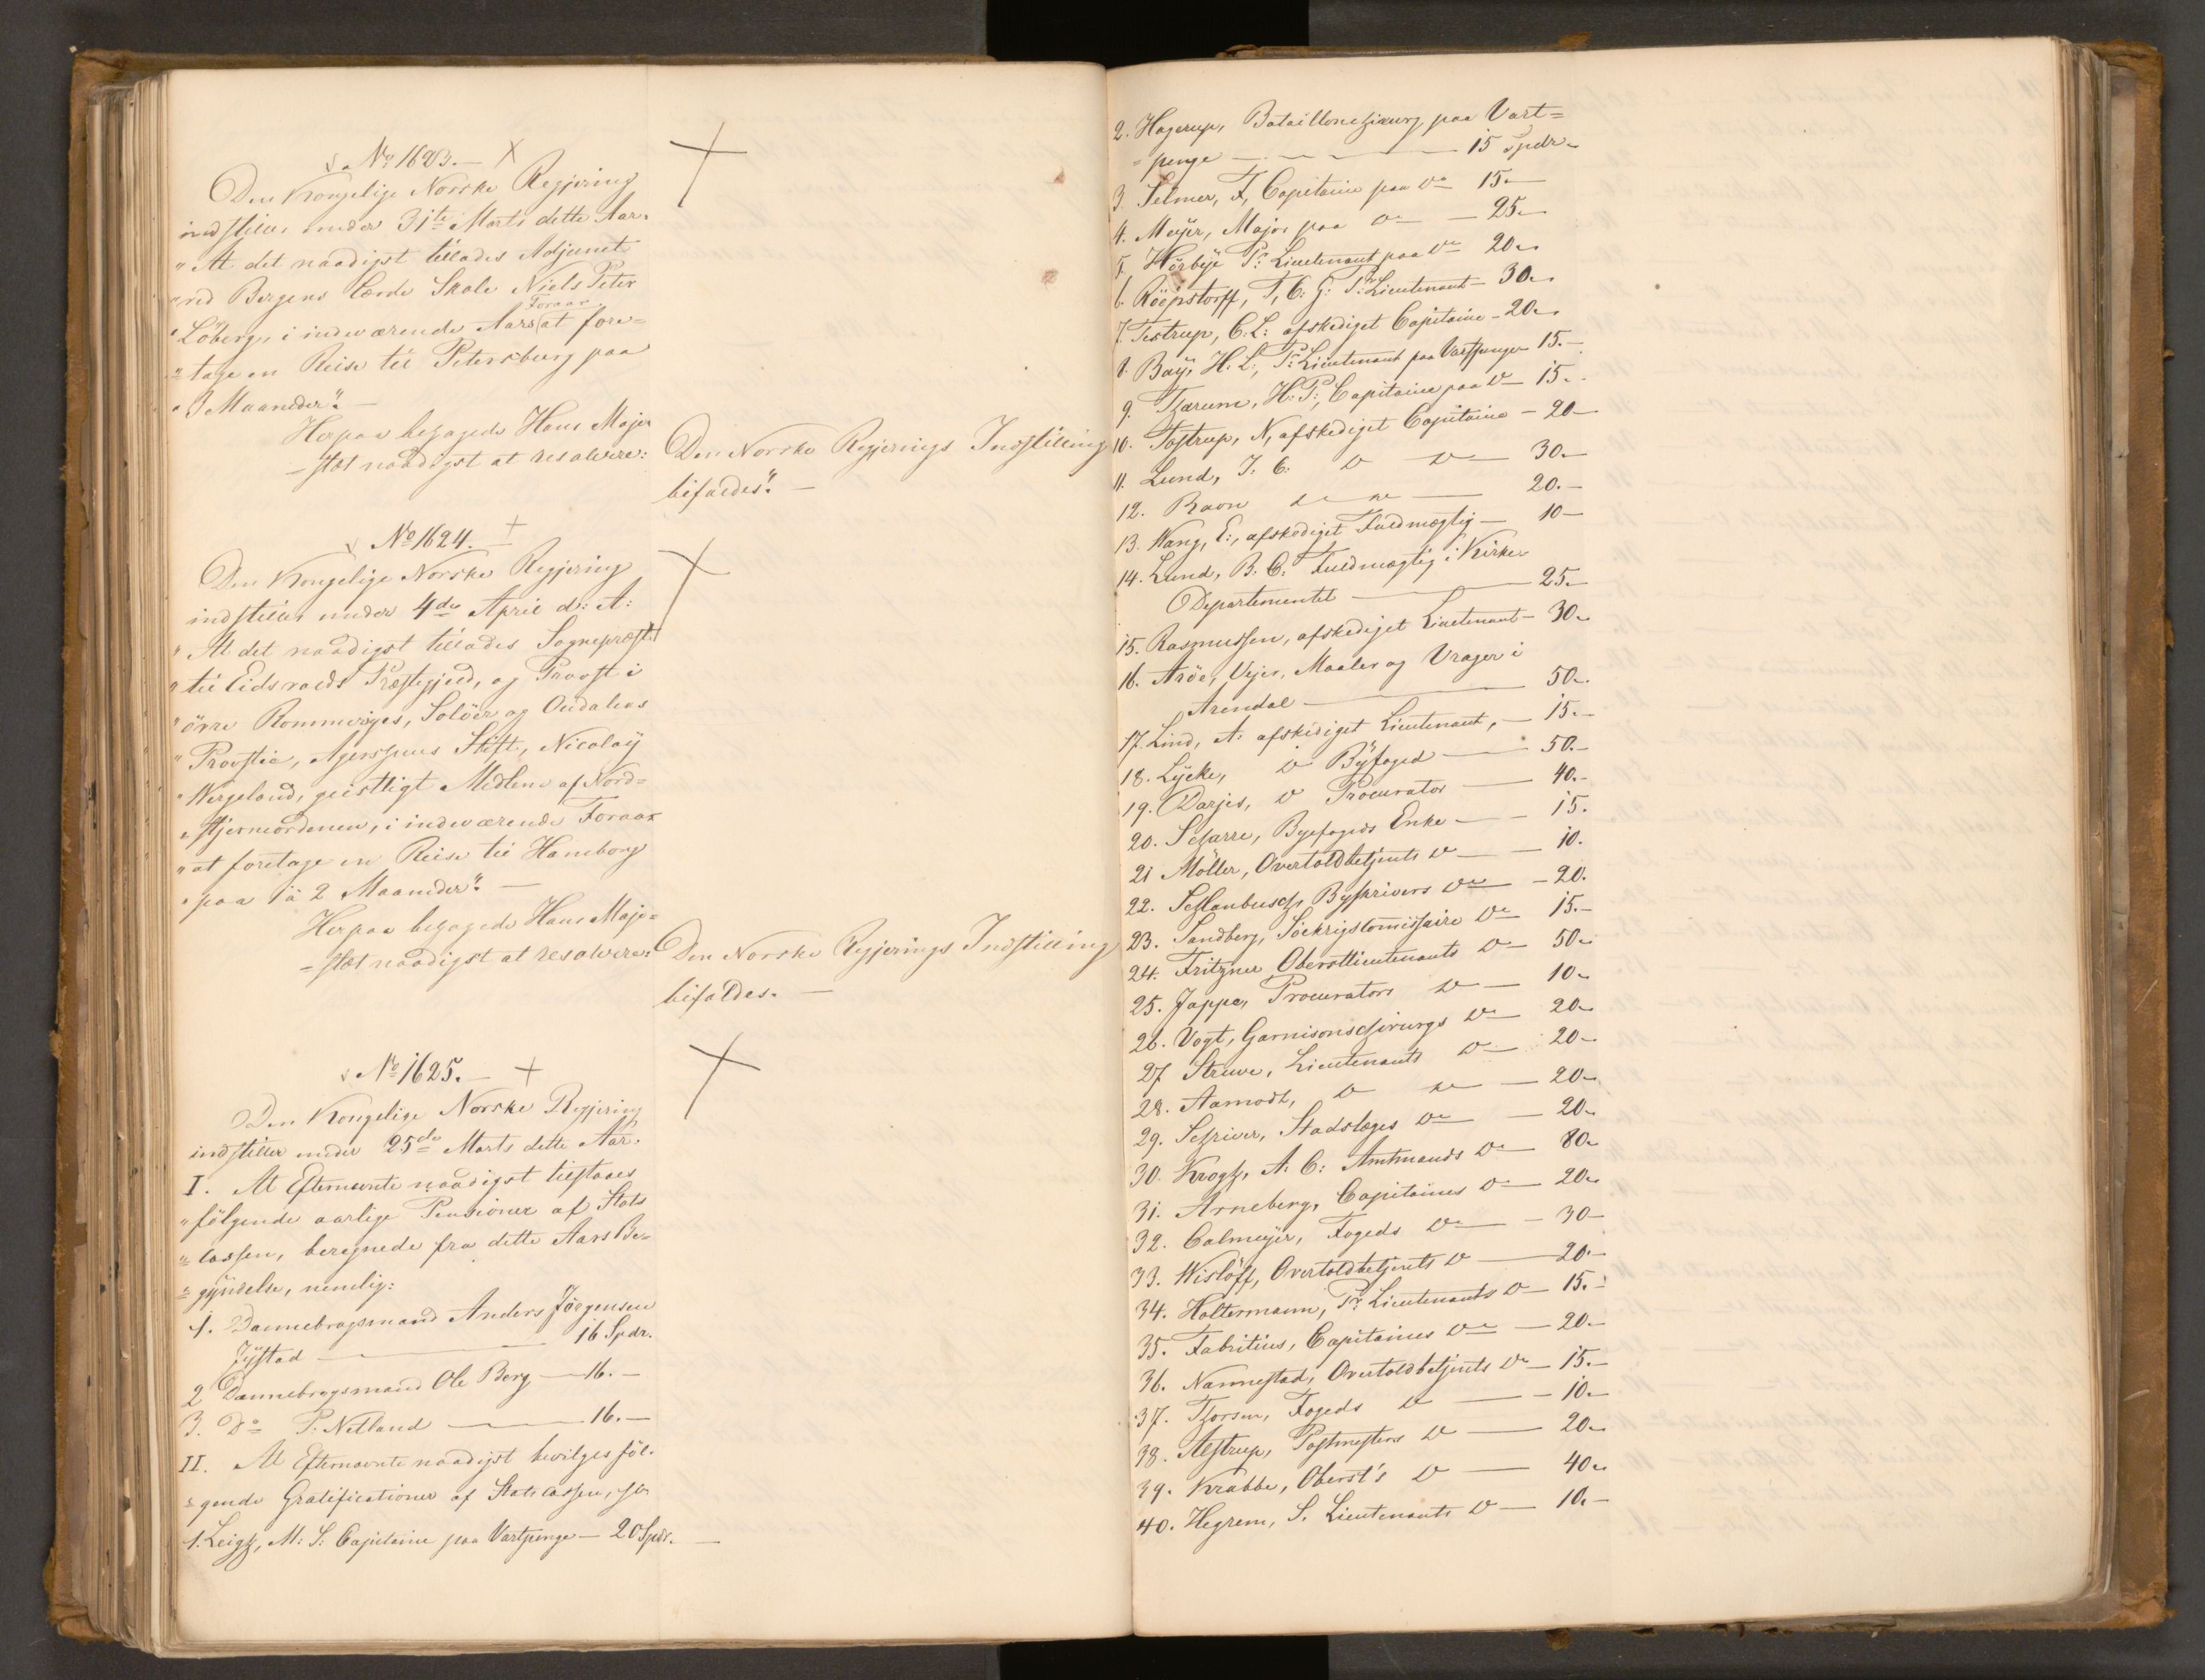 No 1623.
Den Kongelige Norske Regjering
indstiller under 31te Marts dette Aar.
"At det naadigst tillades Adjunct
"ved Bergens lærde Skole Niels Peter
Foraar
"Löberg, i indeværende Aars at fore=
"tage en Reise til Petersburg paa
"3 Maaneder". —
Herpaa behagede Hans Maje-
=stæt naadigst at resolvere:
Den Norske Regjerings Indstilling
bifaldes". —
No 1624.
Den Kongelige Norske Regjering
indstiller under 4de April d: A:
"At det naadigst tillades Sognepræst
"til Eidsvolds Præstegjeld, og Provst i
"övre Rommeriges, Solöer og Oudalens
"Provstie, Agershuus Stift, Nicolaÿ
"Wergeland, geistligt Medlem af Nord=
"stjerneordenen, i indeværende Foraar
"at foretage en Reise til Hamborg
"paa 1 à 2 Maaneder". —
Herpaa behagede Hans Maje=
=stæt naadigst at resolvere:
Den Norske Regjerings Indstilling
bifaldes. —
No 1625. —
Den Kongelige Norske Regjering
indstiller under 25de Marts dette Aar.
I. At Efternævnte naadigst tilstaaes
"fölgende aarlige Pensioner af Stats
"cassen, beregnede fra dette Aars Be=
"gÿndelse, nemlig:
1. Dannebrogsmand Anders Jörgensen
Jÿstad — 16 Spdr.
2 Dannebrogsmand Ole Berg — 16. —
3. Do P: Netland — 16. —
II. At Efternævnte naadigst bevilges föl-
=gende Gratificationer af Statscassen,
1. Leigh, M: S: Capitaine paa Vartpenge — 20 Spdr. —
2. Hagerup, Bataillonschirurg paa Vart=
=penge — 15 Spdr.
3. Selmer, F, Capitaine paa Do 15. —
4. Meÿer, Major paa Do — 25. —
5. Hörbÿe Pr: Lieutenant paa Do 20. —
6. Röepstorff, F, C: G: Pr: Lieutenant — 30. —
7. Testrup, C: L: afskediget Capitaine — 20. —
8. Baÿ, H. L:, Pr: Lieutenant paa Vartpenge 15. —
9. Tharum, H: P:, Capitaine paa Do 15. —
10. Tostrup, N, afskediget Capitaine — 20 —
11. Lund, J. C. Do Do — 30. —
12. Ravn Do Do — 20. —
13. Wang, E:, afskediget Fuldmægtig — 10 —
14. Lund, B. C. Fuldmægtig i Kirke-
Departementet — 25. —
15. Rasmussen, afskediget Lieutenant — 30. —
16. Aröe, Vejer, Maaler og Vrager i
Arendal — 50. —
17. Lind, A. afskediget Lieutenant, — 15. —
18. Lÿcke, Do Bÿfoged — 50. —
19. Darjes, Do Procurator — 40. —
20. Scharre, Byefogeds Enke — 15.
21 Möller, Overtoldbetjents Do — 10.
22. Schlanbusch, Byskrivers Do — 20.
23. Sandberg, Söekrigscomissaire Do 15. —
24. Fritzner Oberstlieutenants Do — 50. —
25. Jappe, Procurators Do — 10. —
26. Vogt, Garnisonschirurgs Do — 20. —
27 Struwe, Lieutenants Do — 20 —
28. Aamodt, Do Do — 20. —
29. Schriver, Stadslæges Do — 20. —
30. Krogh, A. C: Amtmands Do — 80. —
31. Arneberg, Capitaines Do — 20. —
32. Calmeÿer, Fogeds Do — 30 —
33. Wislöff, Overtoldbetjents Do — 20. —
34. Holtermann, Pr: Lieutenants Do — 15. —
35. Fabritius, Capitaines Do — 20. —
36. Nannestad, Overtoldbetjents Do — 15. —
37. Thorsen, Fogeds Do — 10. —
38. Alstrup, Postmesters Do — 20. —
39. Krabbe, Oberst's Do — 40. —
40. Hegrem, S. Lieutenants Do — 10. —